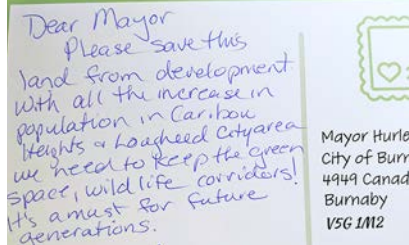 Dear Mayor
Please save this
land from development
with all the increase in
population in Caribou
Heights & Lougheed City area
we need to keep the green
space, wild life corriders!
It's a must for future
generations.
Mayor Hurle
City of Burn
4949 Canad
Burnaby
V5G 1M2